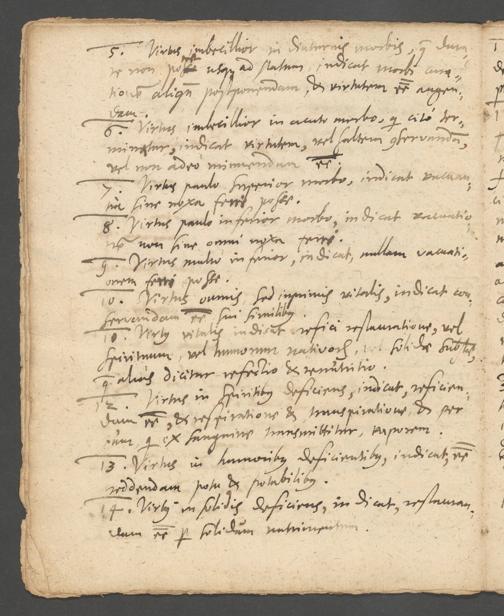 5. Virtus imbecillior in diuturnis morbis, q̄ dura-
re non posse usq ad statum, indicat morbi cura-
tionē aliqn postponendam, & virtutem eē augen-
dam.
6. Virtus imbecillior in acuto morbo, q cito ter-
minatur, indicat virtutem, vel saltem conservandā,
vel non adeo minuendam eē.
7. Virtus paulo superior morbo, indicat vacuan-
sine noxa ferri posse.
8. Virtus paulo inferior morbo, indicat vacuatio-
nē non sine omni noxa ferri.
9. Virtus multo inferior, indicat, nullam vacuati-
onem ferri posse.
10. Virtus omnis, sed inprimis vitalis, indicat con-
servandam eē sui similiby.
vitalis indicat refici restauratione, vel
spirituum, vel humorum nativorū, vel solidæ
q̄ alias dicitur refectio &
12. Virtus in spiritiby deficiens, indicat, reficien-
dam eē, & respiratione & transpiratione, & per
eum, q ex sanguine transmittitur, vaporem.
13. Virtus in humoriby deficientiby, indicat, eē
reddendam potu & potabiliby.
14. in solidis deficiens, indicat, restauran-
dam eē p solidum nutrimentum.